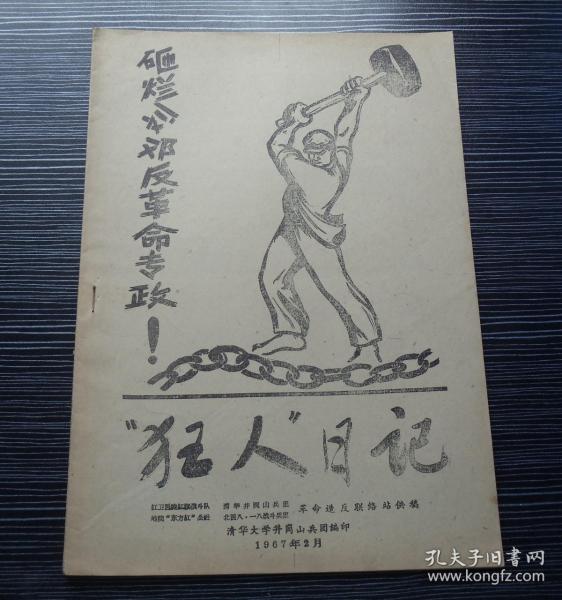 砸烂刘邓反革命专政！
“狂人”日记
清华井岡山兵团
革命造反联络站供稿
地院“东方红”公社
北医八·一八战斗兵团
清华大学井岡山兵团编印
1967年2月
孔夫子旧书网
www.kongfz.com